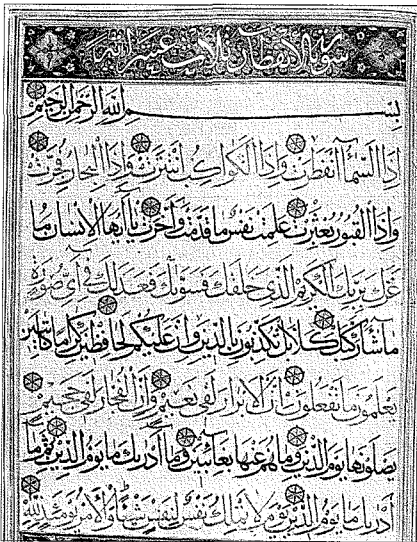 سورة الانفطار
بسم الله الرحمن الرحيم
اذا السماء انفطرت واذا الكواكب انتثرت واذا البحار فجرت
واذا القبور بعثرت علمت نفس ما قدمت واخرت يا ايها الانسان ما
غرك بربك الكريم الذى خلقك فسويك فعدلك فى اى صورة
ما شاء ركبك كلا بل تكذبون بالدين وان عليكم لحافظين كراما كاتبين
يعلمون ما تفعلون ان الابرار لفى نعيم وان الفجار لفى جحيم
يصلونها يوم الدين وما هم عنها بغائبين وما ادريك ما يوم الدين ثم ما
ادريك ما يوم الدين يوم لا تملك نفس لنفس شيئا والامر يومئذ لله